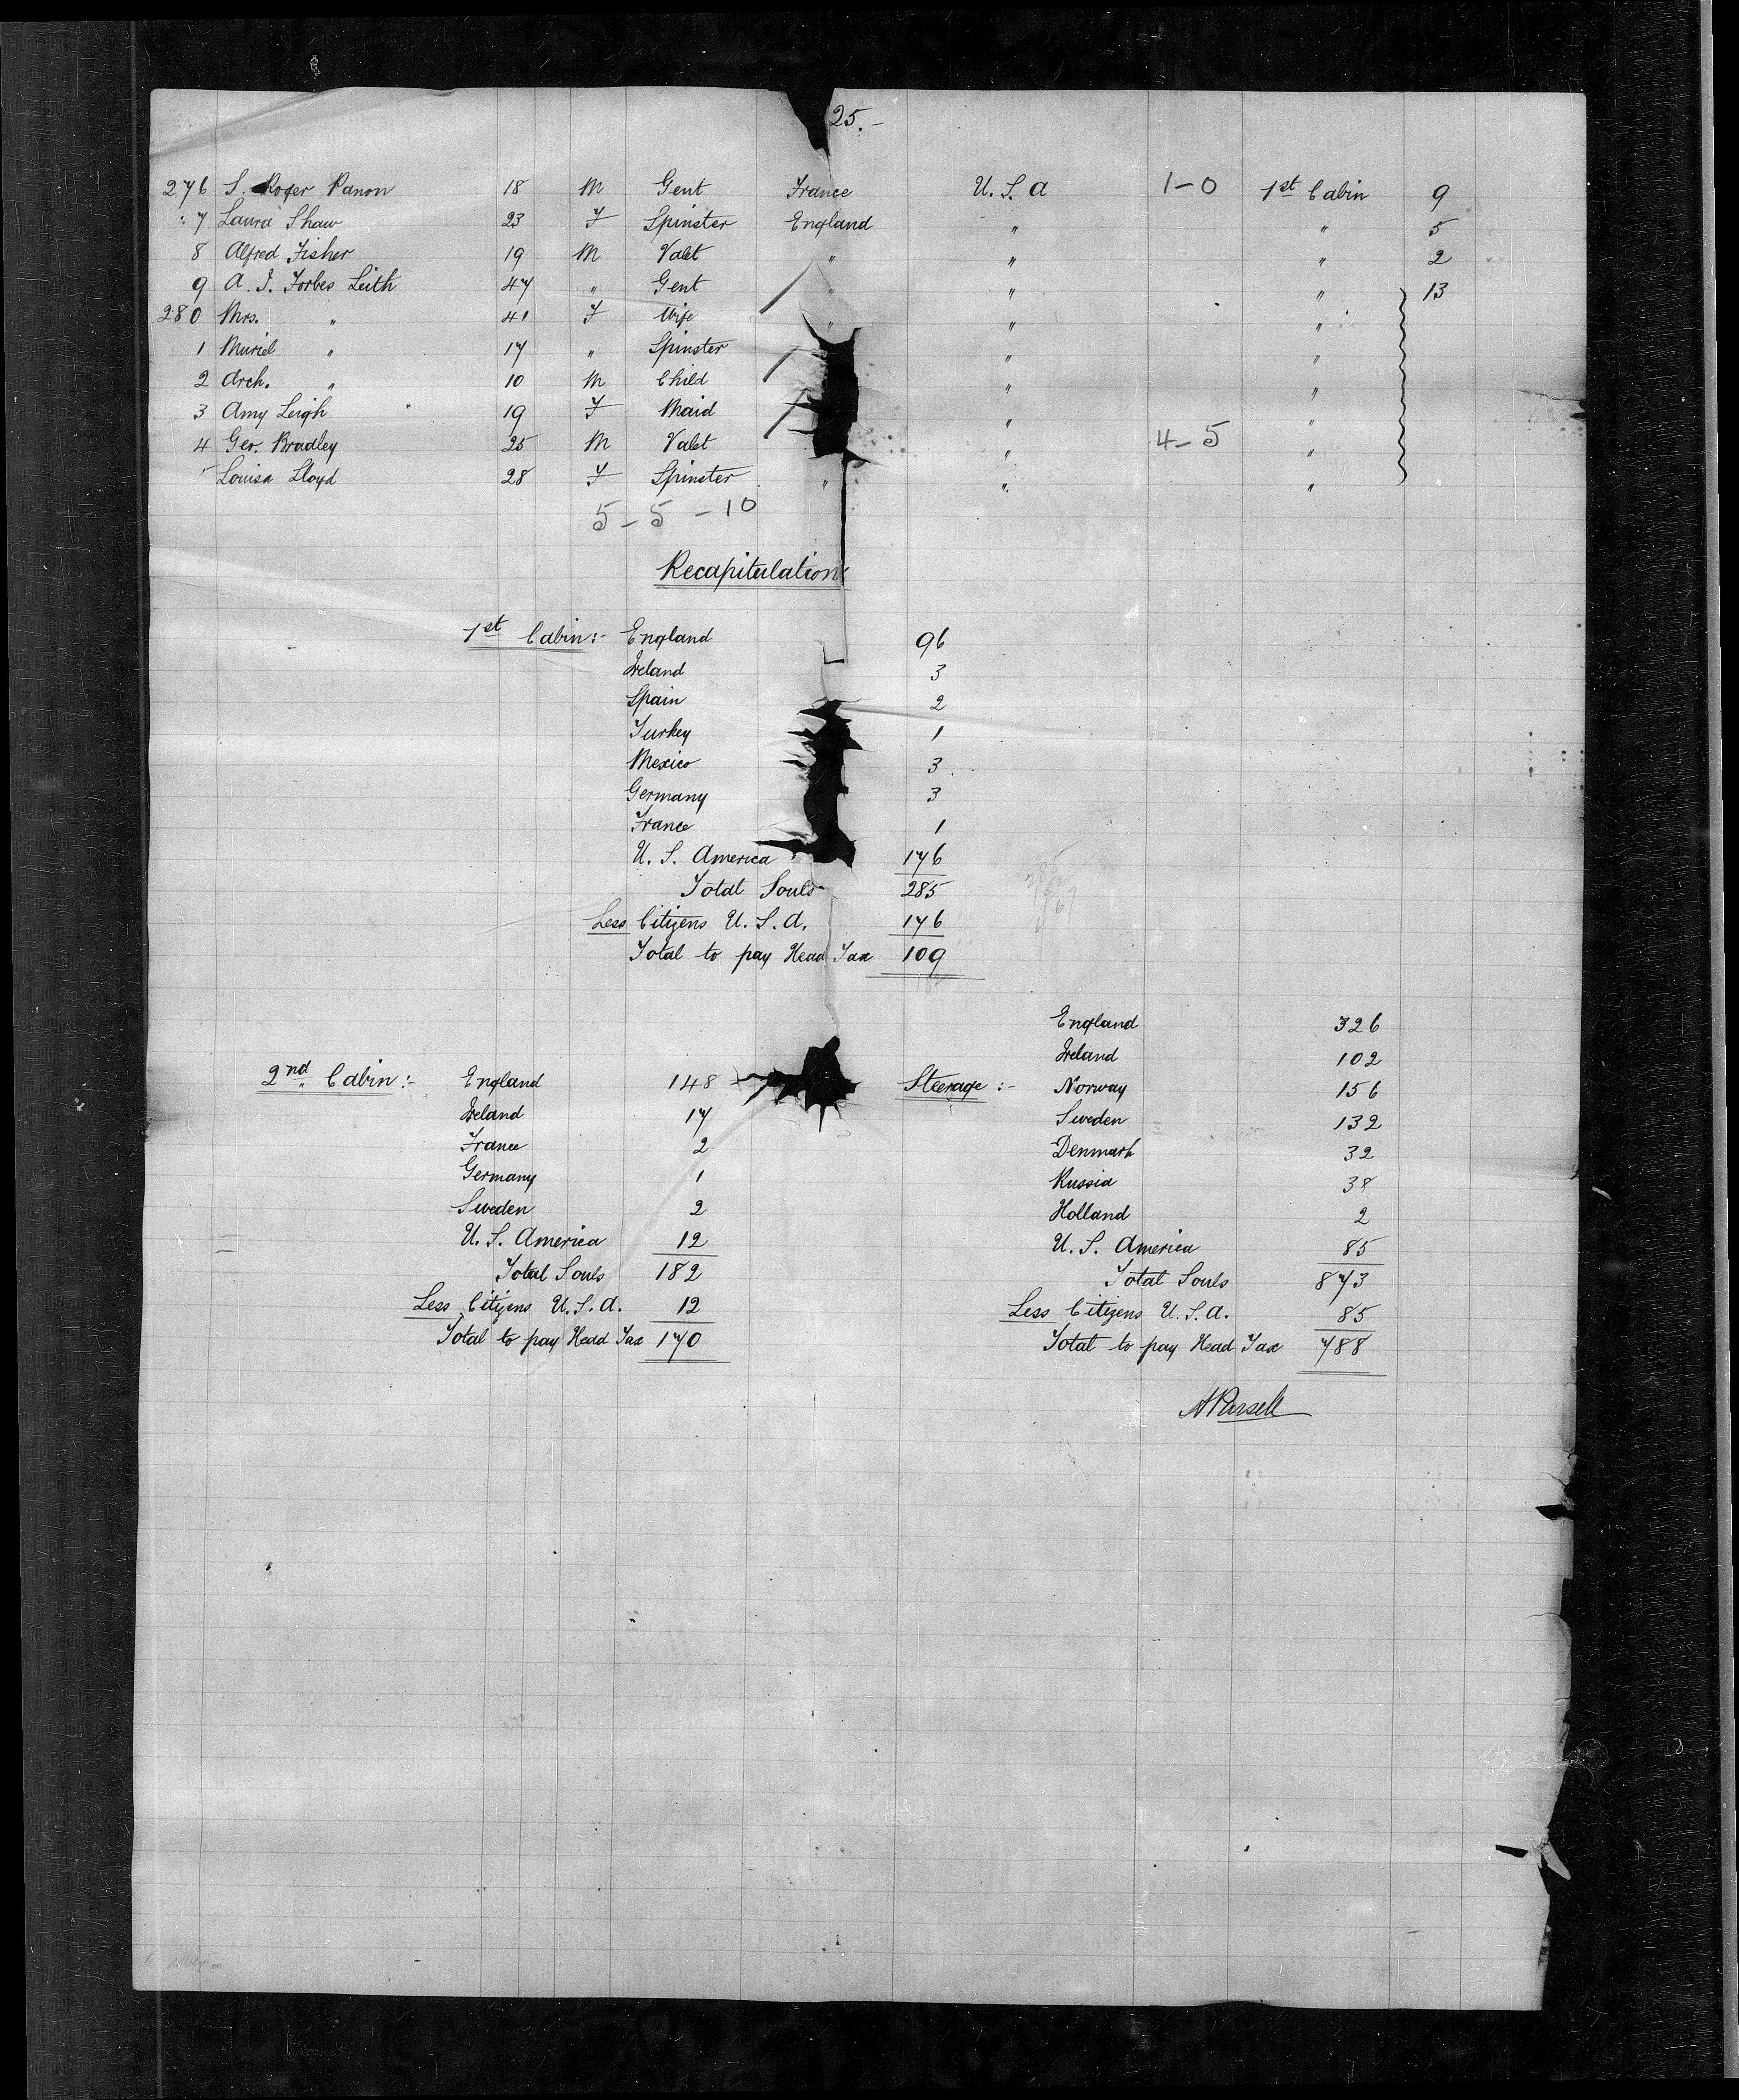 25.-
276 S. Roger Panon 18 M Gent France U. S. A 1-0 1st Cabin 9
7 Laura Shaw 23 F Spinster England " " 5
8 Alfred Fisher 19 M Valet " " " 2
9 A. J. Forbes Leith 47 " Gent " " " 13
280 Mrs. " 41 F Wife " " "
1 Muriel " 17 " Spinster " "
2 Arch. " 10 M Child " "
3 Amy Leigh 19 F Maid " "
4 Geo. Bradley 25 M Valet " 4-5 "
Louisa Lloyd 28 F Spinster " " "
5-5-10
Recapitulation
1st Cabin:- England 96
Ireland 3
Spain 2
Turkey 1
Mexico 3
Germany 3
France 1
U. S. America 176
Total Souls 285
Less Citizens U. S. A. 176
Total to pay Head Tax 109
2nd Cabin:- England 148
Ireland 17
France 2
Germany 1
Sweden 2
U. S. America 12
Total Souls 182
Less Citizens U. S. A. 12
Total to pay Head Tax 170
England 326
Ireland 102
Steerage:- Norway 156
Sweden 132
Denmark 32
Russia 38
Holland 2
U. S. America 85
Total Souls 873
Less Citizens U. S. A. 85
Total to pay Head Tax 788